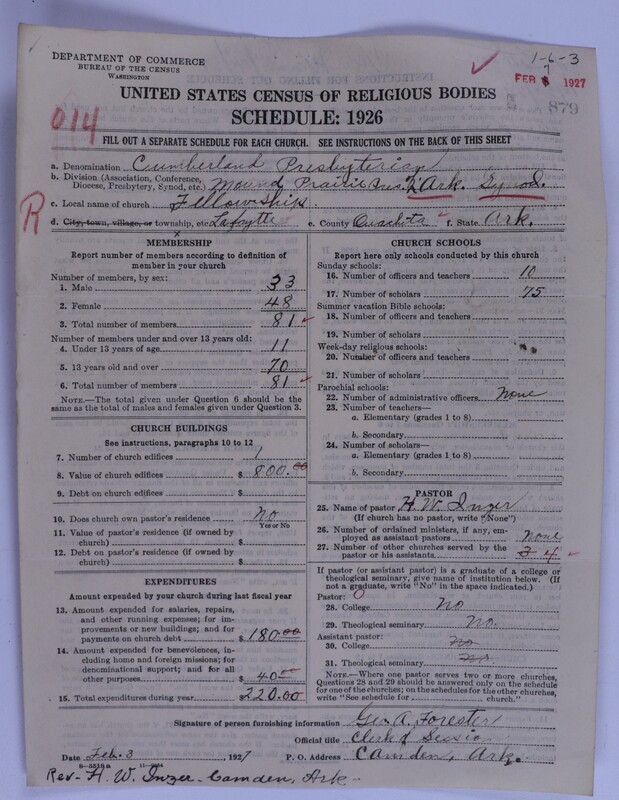 DEPARTMENT OF COMMERCE
BUREAU OF THE CENSUS
WASHINGTON
1-6-3
7
FEB 8 1927
879
UNITED STATES CENSUS OF RELIGIOUS BODIES
SCHEDULE: 1926
014
FILL OUT A SEPARATE SCHEDULE FOR EACH CHURCH. SEE INSTRUCTIONS ON THE BACK OF THIS SHEET
a. Denomination Cumberland Presbyterian
b. Division (Association, Conference, Diocese, Presbytery, Synod, etc.) Mound Prairie Ark. Synod.
c. Local name of church Fellowship
R
d. City, town, village, or township, etc. Lafaytte e. County Ouachita f. State Ark.
MEMBERSHIP
Report number of members according to definition of member in your church
Number of members, by sex:
1. Male 33
2. Female 48
3. Total number of members 81
Number of members under and over 13 years old:
4. Under 13 years of age 11
5. 13 years old and over 70
6. Total number of members 81
NOTE.—The total given under Question 6 should be same as the total of males and females given under Question 3.
CHURCH BUILDINGS
See instructions, paragraphs 10 to 12
7. Number of church edifices 1
8. Value of church edifices $ 800.00
9. Debt on church edifices $
10. Does church own pastor's residence No
Yes or No
11. Value of pastor's residence (if owned by church) $
12. Debt on pastor's residence (if owned by church) $
EXPENDITURES
Amount expended by your church during last fiscal year
13. Amount expended for salaries, repairs, and other running expenses; for improvements or new buildings; and for payments on church debt $ 180.00
14. Amount expended for benevolences, including home and foreign missions; for denominational support; and for all other purposes $ 40
15. Total expenditures during year $ 220.00
CHURCH SCHOOLS
Report here only schools conducted by this church
Sunday schools:
16. Number of officers and teachers 10
17. Number of scholars 75
Summer vacation Bible schools:
18. Number of officers and teachers
19. Number of scholars
Week-day religious schools:
20. Number of officers and teachers
21. Number of scholars
Parochial schools:
22. Number of administrative officers None
23. Number of teachers—
a. Elementary (grades 1 to 8)
b. Secondary
24. Number of scholars—
a. Elementary (grades 1 to 8)
b. Secondary
PASTOR
25. Name of pastor H. W. Inzer
(If church has no pastor, write "None")
26. Number of ordained ministers, if any, employed as assistant pastors None
27. Number of other churches served by the pastor or his assistants 3 4
If pastor (or assistant pastor) is a graduate of a college or theological seminary, give name of institution below. (If not a graduate, write "No" in the space indicated.)
Pastor:
28. College No
29. Theological seminary No.
Assistant pastor:
30. College No
31. Theological seminary No.
NOTE.—Where one pastor serves two or more churches, Questions 28 and 29 should be answered only on the schedule for one of the churches; on the schedules for the other churches, write "See schedule for ...... church."
Signature of person furnishing information Geo. A. Forester
Official title Clerk of Session
Date Feb. 3 1927 P. O. Address Camden, Ark.
Rev- H. W. Inzer- Camden, Ark-